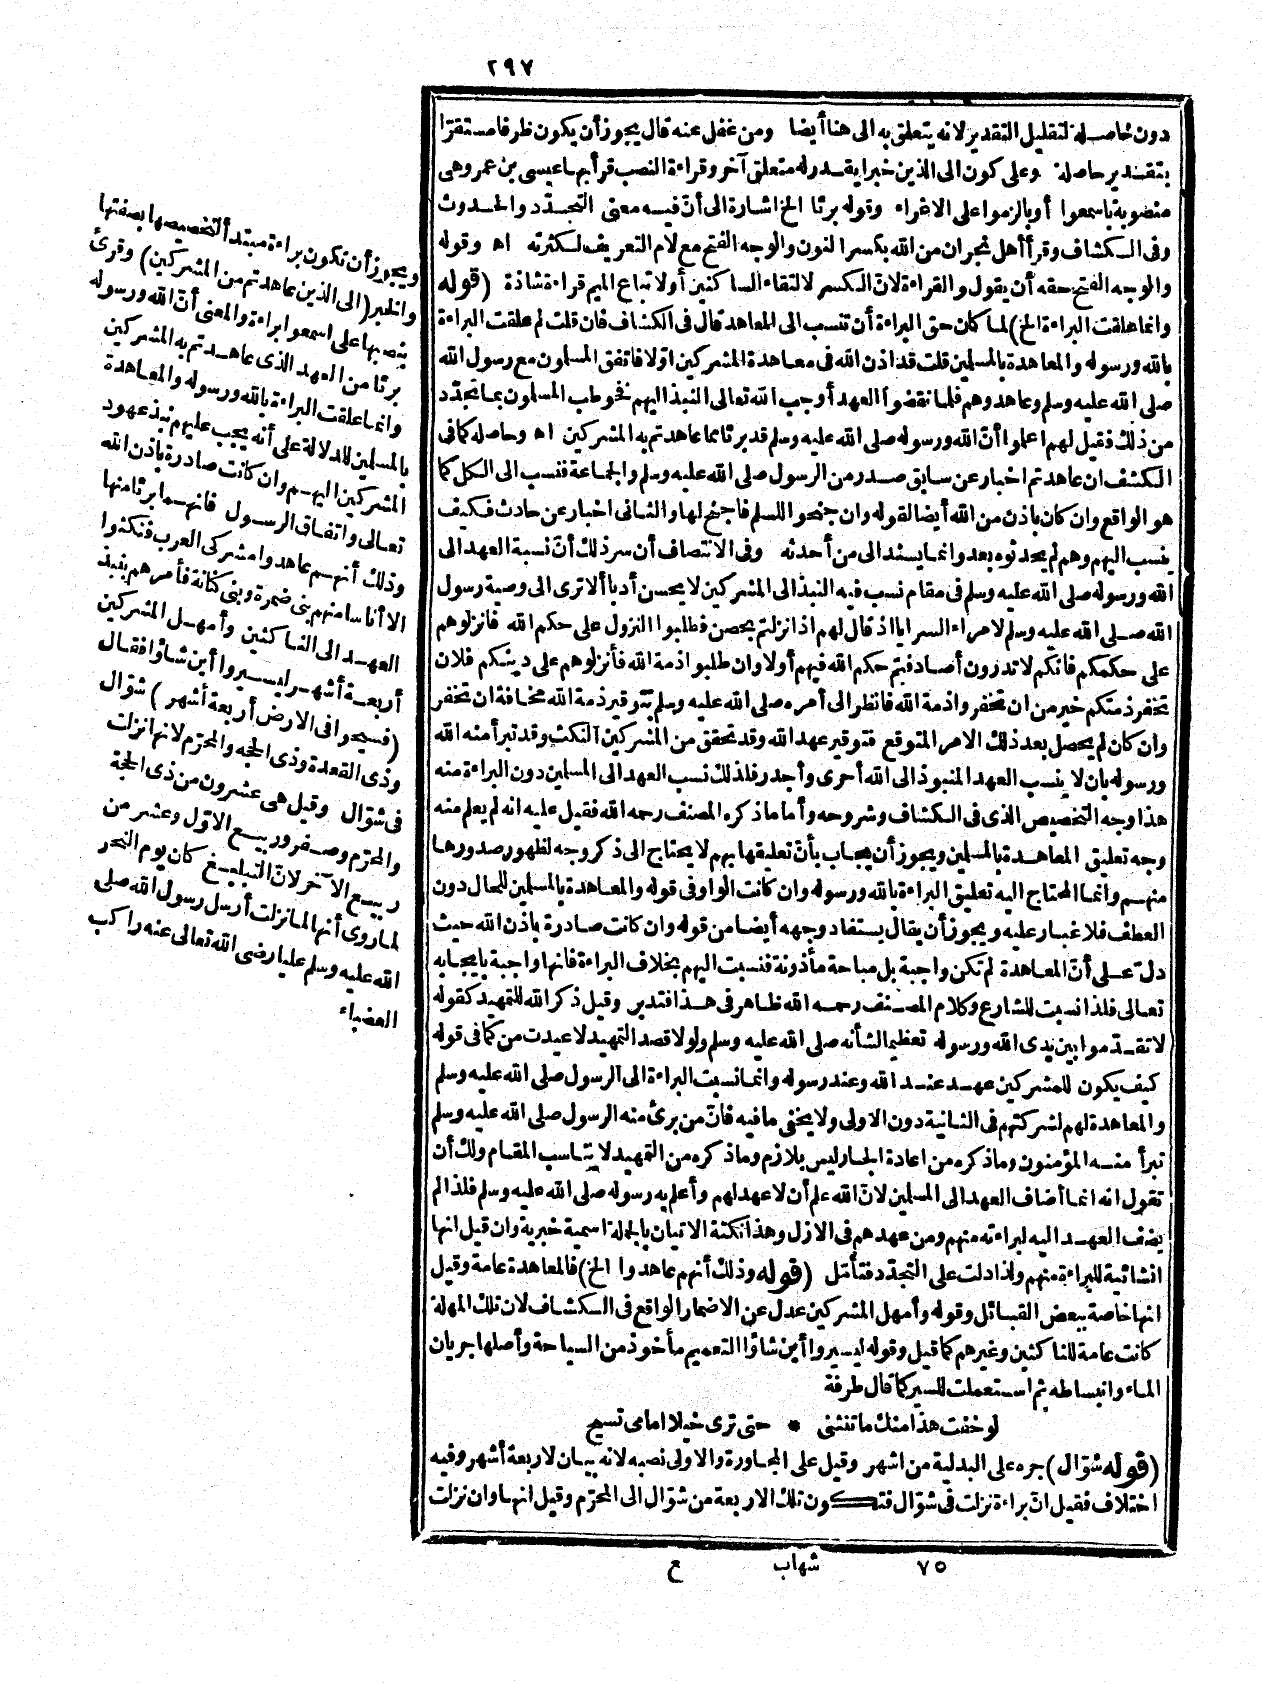 ٢٩٧
دون حاصلة لتقليل التقدير لانه يتعلق به الى هنا أيضا ومن غفل عنه قال يجوز أن يكون ظرفا مستقرّا
بتقدير حاصلة وعلى كون الى الذين خبرا يقدر له متعلق آخر وقراءة النصب قرأ بها عيسى بن عمر وهى
منصوبة باسمعوا أو بالزموا على الاغراء وقوله برئا الخ اشارة الى أنّ فيه معنى التجدّد والحدوث
وفى الكشاف وقرأ أهل نجران من الله بكسر النون والوجه الفتح مع لام التعريف لكثرته اه وقوله
والوجه الفتح حقه أن يقول والقراءة لانّ الكسر لالتقاء الساكنين أو لاتباع الميم قراءة شاذة (قوله
وانما علقت البراءة الخ) لما كان حق البراءة أن تنسب الى المعاهد قال فى الكشاف فان قلت لم علقت البراءة
بالله ورسوله والمعاهدة بالمسلمين قلت قد اذن الله فى معاهدة المشركين اوّلا فاتفق المسلمون مع رسول الله
صلى الله عليه وسلم وعاهدوهم فلما نقضوا العهد أوجب الله تعالى النبذ اليهم فخوطب المسلمون بما تجدّد
من ذلك فقيل لهم اعلموا أنّ الله ورسوله صلى الله عليه وسلم قد برئا مما عاهدتم به المشركين اه وحاصله كما فى
الكشف ان عاهدتم اخبار عن سابق صدر من الرسول صلى الله عليه وسلم والجماعة فنسب الى الكل كما
هو الواقع وان كان باذن من الله أيضا لقوله وان جنحوا للسلم فاجنح لها والثانى اخبار عن حادث فكيف
ينسب اليهم وهم لم يحدثوه بعد وانما يسند الى من أحدثه وفى الانتصاف أن سر ذلك أنّ نسبة العهد الى
الله ورسوله صلى الله عليه وسلم فى مقام نسب فيه النبذ الى المشركين لا يحسن أدبا ألا ترى الى وصية رسول
الله صلى الله عليه وسلم لامراء السرايا اذ قال لهم اذا نزلتم بحصن فطلبوا النزول على حكم الله فانزلوهم
على حكمكم فانكم لا تدرون أصادفتم حكم الله فيهم أولا وان طلبوا ذمة الله فأنزلوهم على ذمتكم فلان
تخفر ذمتكم خير من ان تخفروا ذمة الله فانظر الى أمره صلى الله عليه وسلم بتوقير ذمة الله مخافة ان تخفر
وان كان لم يحصل بعد ذلك الامر المتوقع فتوقير عهد الله وقد تحقق من المشركين النكث وقد تبرأ منه الله
ورسوله بان لا ينسب العهد المنبوذ الى الله أحرى وأجدر فلذلك نسب العهد الى المسلمين دون البراءة منه
هذا وجه التخصيص الذى فى الكشاف وشروحه وأما ما ذكره المصنف رحمه الله فقيل عليه انه لم يعلم منه
وجه تعليق المعاهدة بالمسلمين ويجوز أن يجاب بأنّ تعليقها بهم لا يحتاج الى ذكر وجه لظهور صدورها
منهم وانما المحتاج اليه تعليق البراءة بالله ورسوله وان كانت الواو فى قوله والمعاهدة بالمسلمين للحال دون
العطف فلا غبار عليه ويجوز أن يقال يستفاد وجهه أيضا من قوله وان كانت صادرة باذن الله حيث
دلّ على أنّ المعاهدة لم تكن واجبة بل مباحة مأذونة فنسبت اليهم بخلاف البراءة فانها واجبة بايجابه
تعالى فلذا نسبت للشارع وكلام المصنف رحمه الله ظاهر فى هذا فتدبر وقيل ذكر الله للتمهيد كقوله
لا تقدّموا بين يدى الله ورسوله تعظيما لشأنه صلى الله عليه وسلم ولولا قصد التمهيد لاعيدت من كما فى قوله
كيف يكون للمشركين عهد عند الله وعند رسوله وانما نسبت البراءة الى الرسول صلى الله عليه وسلم
والمعاهدة لهم لشركتهم فى الثانية دون الاولى ولا يخفى ما فيه فانّ من برئ منه الرسول صلى الله عليه وسلم
تبرأ منه المؤمنون وما ذكره من اعادة الجار ليس بلازم وما ذكره من التمهيد لا يناسب المقام ولك أن
تقول انه انما أضاف العهد الى المسلمين لانّ الله علم أن لا عهد لهم وأعلم به رسوله صلى الله عليه وسلم فلذا لم
يضف العهد اليه لبراءته منهم ومن عهدهم فى الازل وهذا نكتة الاتيان بالجملة اسمية خبرية وان قيل انها
انشائية للبراءة منهم ولذا دلت على التجدّد فتأمّل (قوله وذلك أنهم عاهدوا الخ) فالمعاهدة عامة وقيل
انها خاصة ببعض القبائل وقوله وأمهل المشركين عدل عن الاضمار الواقع فى الكشاف لان تلك المهلة
كانت عامة للناكثين وغيرهم كما قيل وقوله ليسيروا أين شاؤا التعميم مأخوذ من السياحة وأصلها جريان
الماء وانبساطه ثم استعملت للسير كما قال طرفة
لو خفت هذا منك ما نمتنى * حتى ترى خيلا امامى تسيح
(قوله شوّال) جره على البدلية من اشهر وقيل على المجاورة والاولى نصبه لانه بيان لاربعة أشهر وفيه
اختلاف فقيل انّ براءة نزلت فى شوّال فتكون تلك الاربعة من شوّال الى المحرّم وقيل انها وان نزلت
٧٥ شهاب ع
ويجوز أن تكون براءة مبتدأ لتخصيصها بصفتها
والخبر (الى الذين عاهدتم من المشركين) وقرئ
بنصبها على اسمعوا براءة والمعنى أنّ الله ورسوله
برئا من العهد الذى عاهدتم به المشركين
وانما علقت البراءة بالله ورسوله والمعاهدة
بالمسلمين للدلالة على أنه يجب عليهم نبذ عهود
المشركين اليهم وان كانت صادرة باذن الله
تعالى واتفاق الرسول فانهما برئا منها
وذلك أنهم عاهدوا مشركى العرب فنكثوا
الا أناسا منهم بنى ضمرة وبنى كنانة فأمرهم بنبذ
العهد الى الناكثين وأمهل المشركين
أربعة أشهر ليسيروا أين شاؤا فقال
(فسيحوا فى الارض أربعة أشهر) شوّال
وذى القعدة وذى الحجة والمحرّم لانها نزلت
فى شوّال وقيل هى عشرون من ذى الحجة
والمحرّم وصفر وربيع الاوّل وعشر من
ربيع الآخر لانّ التبليغ كان يوم النحر
لما روى أنها لما نزلت أرسل رسول الله صلى
الله عليه وسلم عليا رضى الله تعالى عنه راكب
العضباء